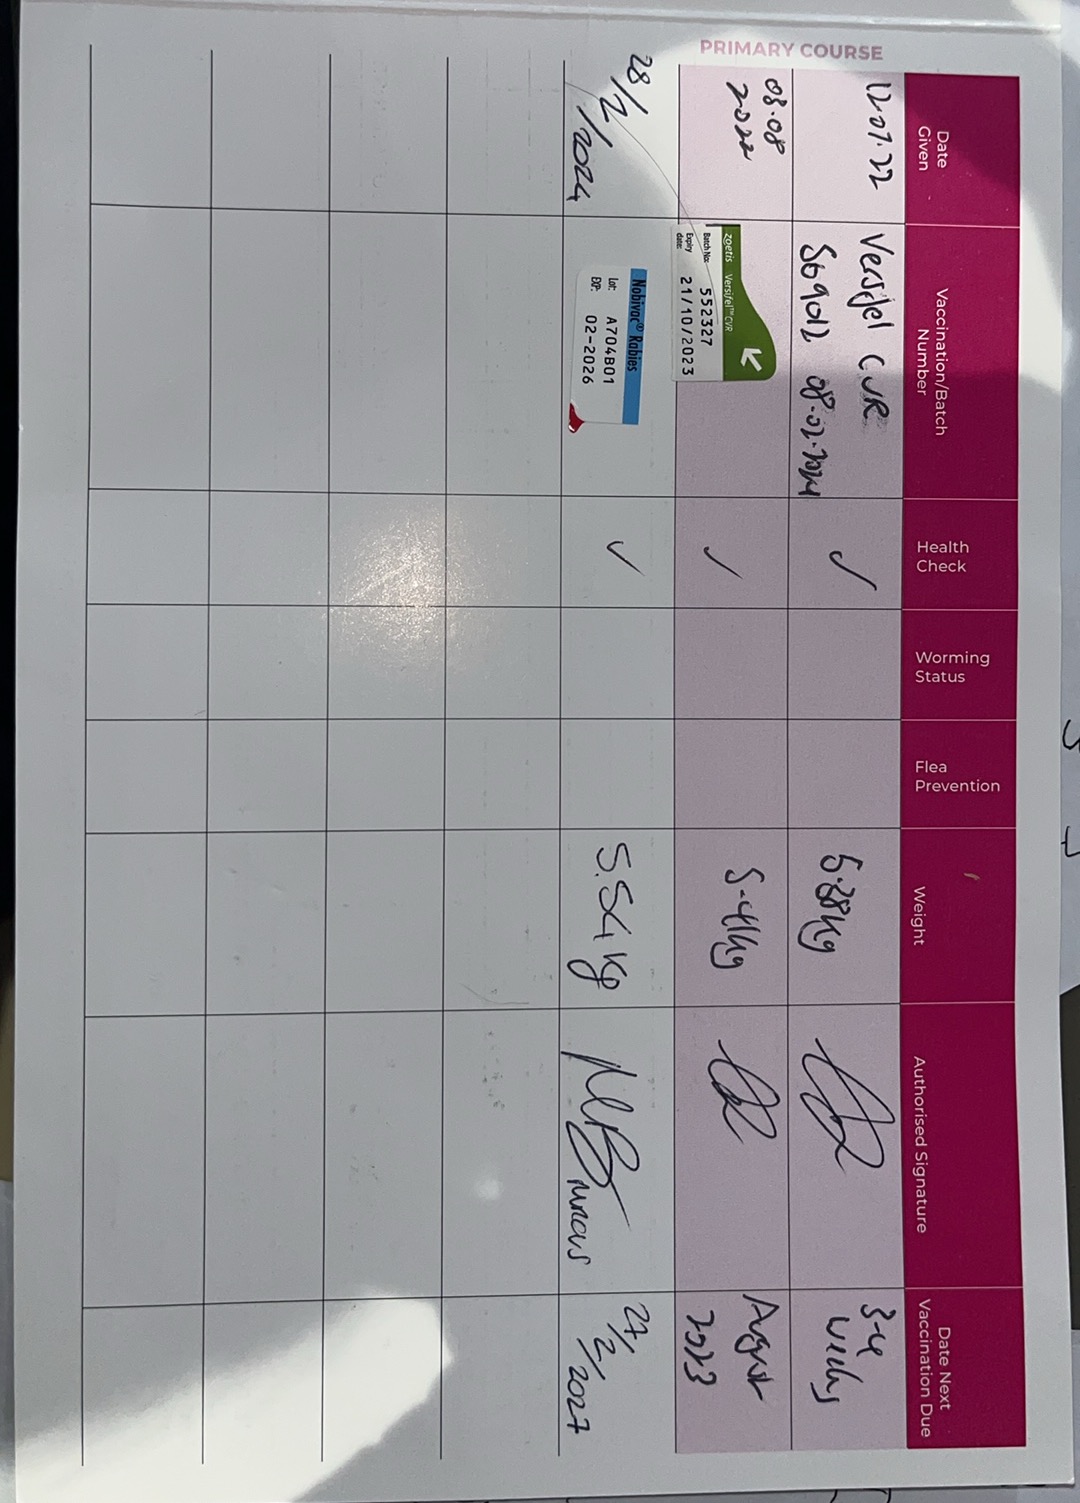 PRIMARY COURSE
Date
Given
Vaccination/Batch
Number
Health
Check
Worming
Status
Flea
Prevention
Weight
Authorised Signature
Date Next
Vaccination Due
12.07.22
Versifel CVR
569012 08.02.2024
✓
5.38kg
3-4
weeks
03.08
2022
zoetis Versifel™ CVR
Batch No:
552327
Expiry
date:
21/10/2023
✓
5.41kg
August
2023
28/2/2024
Nobivac® Rabies
Lot: A704B01
EXP: 02-2026
✓
5.54 kg
27/2/2027